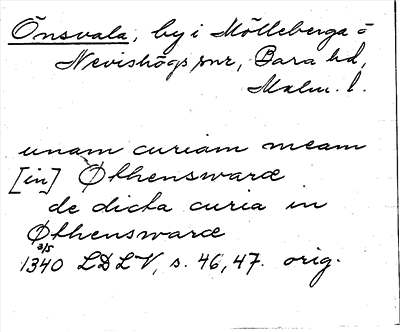 Önsvala, by i Mölleberga o
Nevishögs snr, Bara hd,
Malm. l.
unam curiam meam
[in] Øthensware
de dicta curia in
Øthensware
3/5
1340 LDLV, s. 46, 47. orig.